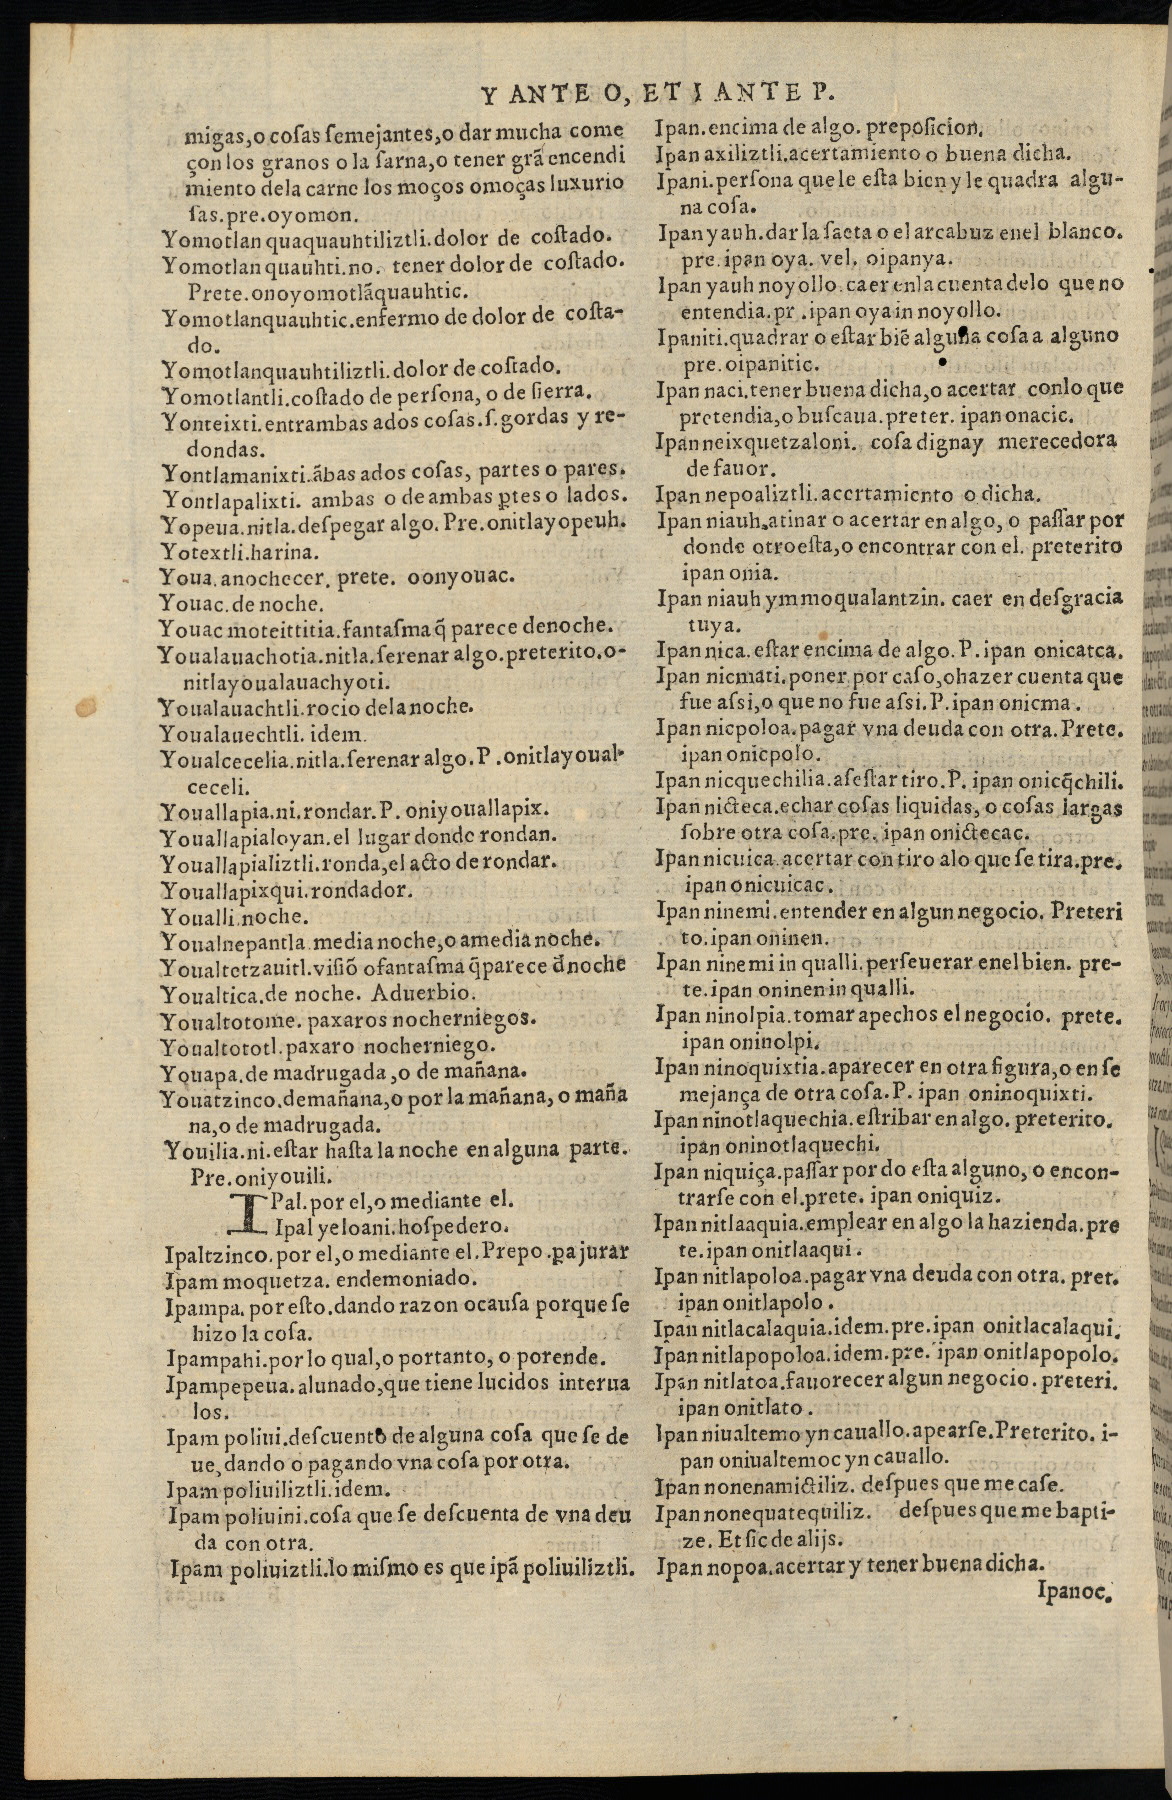 Y ANTE O, ET I ANTE P.
migas,o coſas ſemejantes,o dar mucha come
çon los granos o la ſarna,o tener grã encendi
miento dela carne los moços omoças luxurio
ſas.pre.oyomon.
Yomotlan quaquauhtiliztli.dolor de coſtado.
Yomotlan quauhti.no. tener dolor de coſtado.
Prete.onoyomotlãquauhtic.
Yomotlanquauhtic.enfermo de dolor de coſta-
do.
Yomotlanquauhtiliztli.dolor de coſtado.
Yomotlantli.coſtado de perſona, o de ſierra.
Yonteixti.entrambas ados coſas.ſ.gordas y re-
dondas.
Yontlamanixti.ãbas ados coſas, partes o pares.
Yontlapalixti. ambas o de ambas ꝑtes o lados.
Yopeua.nitla.deſpegar algo. Pre.onitlayopeuh.
Yotextli.harina.
Youa.anochecer. prete. oonyouac.
Youac.de noche.
Youac moteittitia.fantaſma q̃ parece denoche.
Youalauachotia.nitla.ſerenar algo.preterito.o-
nitlayoualauachyoti.
Youalauachtli.rocio dela noche.
Youalauechtli. idem.
Youalcecelia.nitla.ſerenar algo. P.onitlayoual-
ceceli.
Youallapia.ni.rondar. P. oniyouallapix.
Youallapialoyan.el lugar donde rondan.
Youallapializtli.ronda,el acto de rondar.
Youallapixqui.rondador.
Youalli.noche.
Youalnepantla.media noche,o amedia noche.
Youaltetzauitl.viſiõ ofantaſma q̃parece d̃noche
Youaltica.de noche. Aduerbio.
Youaltotome. paxaros nocherniegos.
Youaltototl.paxaro nocherniego.
Youapa.de madrugada,o de mañana.
Youatzinco.demañana,o por la mañana, o maña
na,o de madrugada.
Youilia.ni.eſtar haſta la noche en alguna parte.
Pre.oniyouili.
IPal.por el,o mediante el.
Ipal yeloani.hoſpedero.
Ipaltzinco.por el,o mediante el.Prepo.ꝑa jurar
Ipam moquetza. endemoniado.
Ipampa.por eſto.dando razon ocauſa porque ſe
hizo la coſa.
Ipampahi.por lo qual,o portanto, o porende.
Ipampepeua.alunado,que tiene lucidos interua
los.
Ipam poliui.deſcuento de alguna coſa que ſe de
ue,dando o pagando vna coſa por otra.
Ipam poliuiliztli.idem.
Ipam poliuini.coſa que ſe deſcuenta de vna deu
da con otra.
Ipam poliuiztli.lo miſmo es que ipã poliuiliztli.
Ipan.encima de algo. prepoſicion.
Ipan axiliztli.acertamiento o buena dicha.
Ipani.perſona que le eſta bien y le quadra algu-
na coſa.
Ipan yauh.dar la ſaeta o el arcabuz enel blanco.
pre.ipan oya. vel. oipanya.
Ipan yauh noyollo.caer enla cuenta delo que no
entendia.pr.ipan oya in noyollo.
Ipaniti.quadrar o eſtar biẽ alguna coſa a alguno
pre.oipanitic.
Ipan naci.tener buena dicha,o acertar conlo que
pretendia,o buſcaua.preter. ipan onacic.
Ipan neixquetzaloni. coſa digna y merecedora
de fauor.
Ipan nepoaliztli.acertamiento o dicha.
Ipan niauh.atinar o acertar en algo, o paſſar por
donde otro eſta,o encontrar con el. preterito
ipan onia.
Ipan niauh ymmoqualantzin. caer en deſgracia
tuya.
Ipan nica.eſtar encima de algo. P.ipan onicatca.
Ipan nicmati.poner por caſo,ohazer cuenta que
fue aſsi,o que no fue aſsi.P.ipan onicma.
Ipan nicpoloa.pagar vna deuda con otra. Prete.
ipan onicpolo.
Ipan nicquechilia.aſeſtar tiro.P. ipan onicq̃chili.
Ipan nicteca.echar coſas liquidas, o coſas largas
ſobre otra coſa.pre. ipan onictecac.
Ipan nicuica.acertar con tiro alo que ſe tira.pre.
ipan onicuicac.
Ipan ninemi.entender en algun negocio. Preteri
to.ipan oninen.
Ipan ninemi in qualli.perſeuerar enel bien. pre-
te.ipan oninen in qualli.
Ipan ninolpia.tomar apechos el negocio. prete.
ipan oninolpi.
Ipan ninoquixtia.aparecer en otra figura,o en ſe
mejança de otra coſa.P. ipan oninoquixti.
Ipan ninotlaquechia.eſtribar en algo. preterito.
ipan oninotlaquechi.
Ipan niquiça.paſſar por do eſta alguno, o encon-
trarſe con el.prete. ipan oniquiz.
Ipan nitlaaquia.emplear en algo la hazienda.pre
te.ipan onitlaaqui.
Ipan nitlapoloa.pagar vna deuda con otra. pret.
ipan onitlapolo.
Ipan nitlacalaquia.idem.pre.ipan onitlacalaqui.
Ipan nitlapopoloa.idem.pre. ipan onitlapopolo.
Ipan nitlatoa.fauorecer algun negocio.preteri.
ipan onitlato.
Ipan niualtemo yn cauallo.apearſe.Preterito. i-
pan oniualtemoc yn cauallo.
Ipan nonenamictiliz. deſpues que me caſe.
Ipan nonequatequiliz. deſpues que me bapti-
ze. Et ſic de alijs.
Ipan nopoa.acertar y tener buena dicha.
Ipanoc.